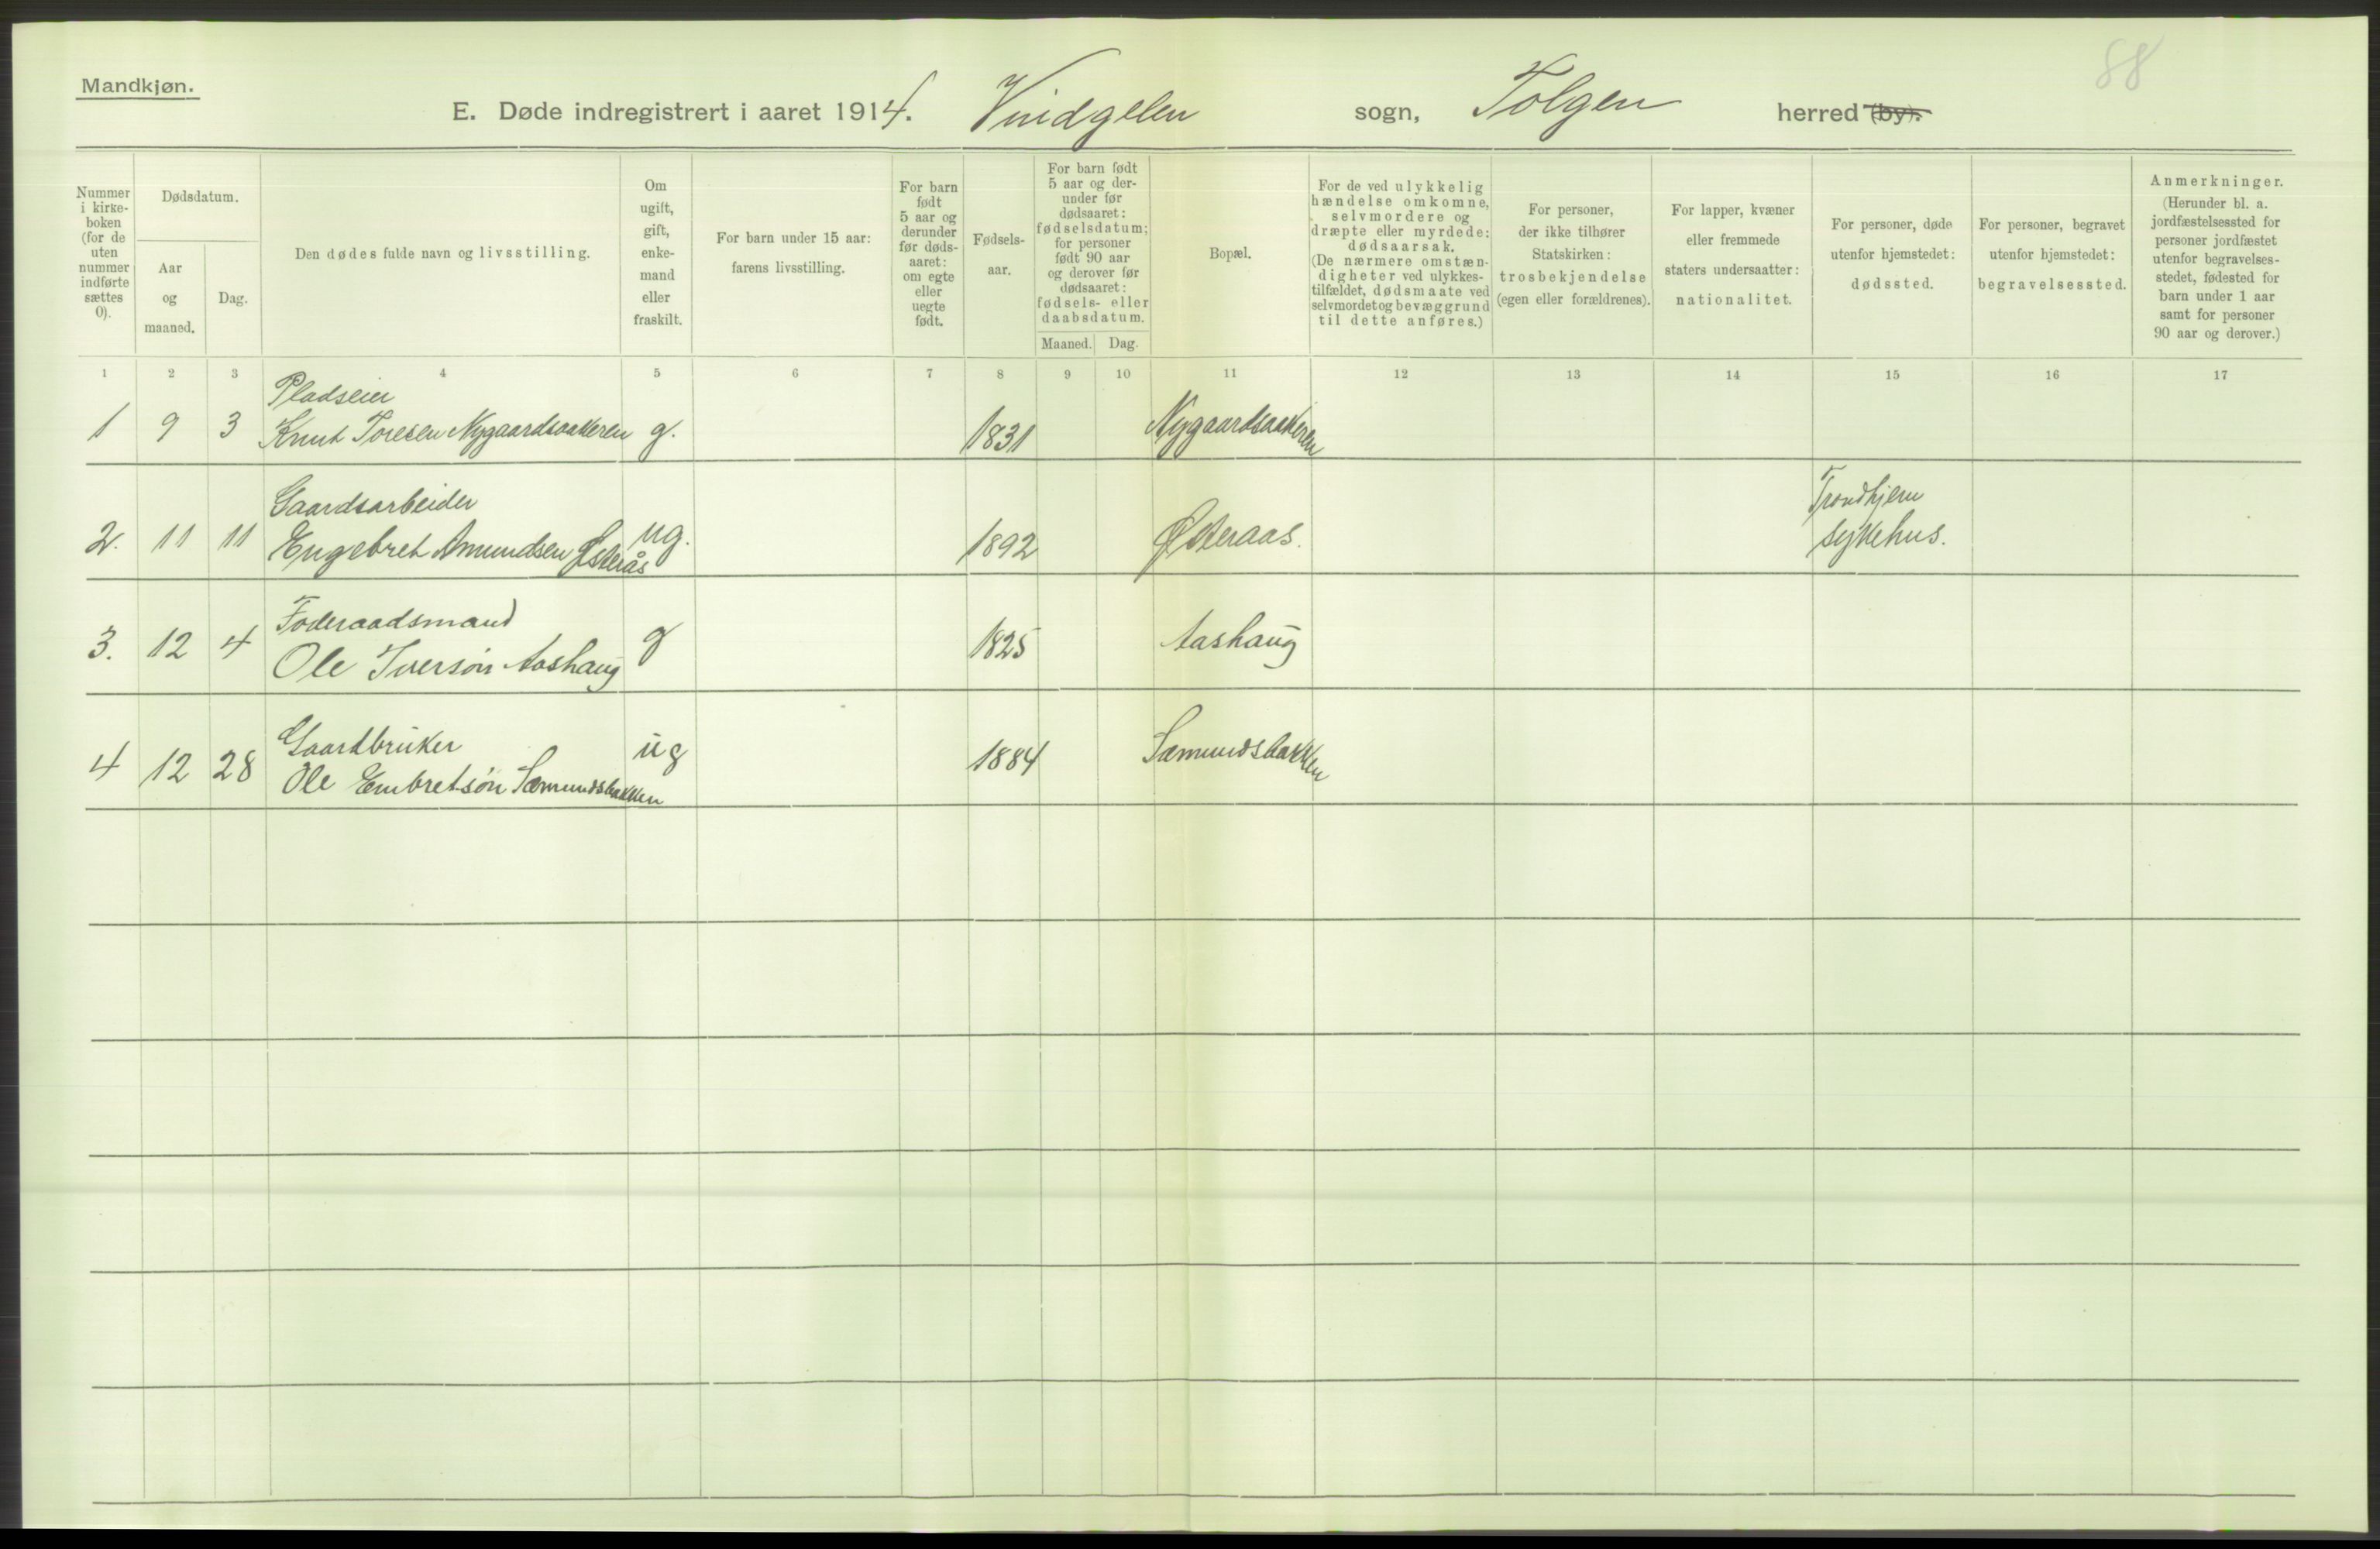 88
Mandkjøn.
E. Døde indregistrert i aaret 1914. Vindgelen sogn, Tolgen herred (by).
Nummer i kirke-boken (for de uten nummer indførte sættes 0).
Dødsdatum.
Aar og maaned.
Dag.
Den dødes fulde navn og livsstilling.
Om ugift, gift, enke-mand eller fraskilt.
For barn under 15 aar: farens livsstilling.
For barn født 5 aar og derunder før døds-aaret: om egte eller uegte født.
Fødsels-aar.
For barn født 5 aar og der-under før dødsaaret: fødselsdatum; for personer født 90 aar og derover før dødsaaret: fødsels- eller daabsdatum.
Maaned.
Dag.
Bopæl.
For de ved ulykkelig hændelse omkomne, selvmordere og dræpte eller myrdede: dødsaarsak. (De nærmere omstæn-digheter ved ulykkes-tilfældet, dødsmaate ved selvmordet og bevæggrund til dette anføres.)
For personer, der ikke tilhører Statskirken: trosbekjendelse (egen eller forældrenes).
For lapper, kvæner eller fremmede staters undersaatter: nationalitet.
For personer, døde utenfor hjemstedet: dødssted.
For personer, begravet utenfor hjemstedet: begravelsessted.
Anmerkninger. (Herunder bl. a. jordfæstelsessted for personer jordfæstet utenfor begravelses-stedet, fødested for barn under 1 aar samt for personer 90 aar og derover.)
1 2 3 4 5 6 7 8 9 10 11 12 13 14 15 16 17
Pladseier
1 9 3 Knut Toresen Nygaardsaakeren g. 1831 Nygaardsaakeren
Gaardsarbeider
2. 11 11 Engebret Amundsen Østerås ug. 1892 Østeraas. Trondhjem sykehus.
Føderaadsmand
3. 12 4 Ole Iversøn Aashaug g 1825 Aashaug
Gaardbruker
4 12 28 Ole Embretsøn Sæmundsbakken ug 1884 Sæmundsbakken